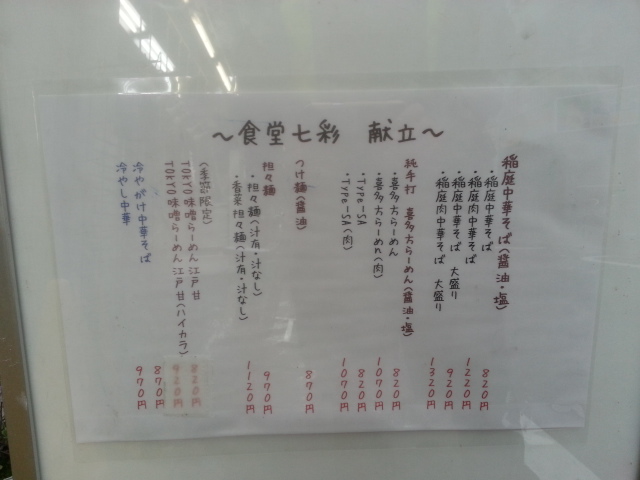 ～食堂七彩　献立～
稲庭中華そば（醤油・塩）
・稲庭中華そば 820円
・稲庭肉中華そば 1220円
・稲庭中華そば 大盛り 920円
・稲庭肉中華そば 大盛り 1320円
純手打 喜多方らーめん（醤油・塩）
・喜多方らーめん 820円
・喜多方らーめん（肉） 1070円
・Type-SA 820円
・Type-SA（肉） 1070円
つけ麺（醤油） 870円
担々麺
・担々麺（汁有・汁なし） 970円
・香菜担々麺（汁有・汁なし） 1120円
（季節限定）
TOKYO味噌らーめん江戸甘 820円
TOKYO味噌らーめん江戸甘（バイカラ） 920円
冷やがけ中華そば 870円
冷やし中華 970円